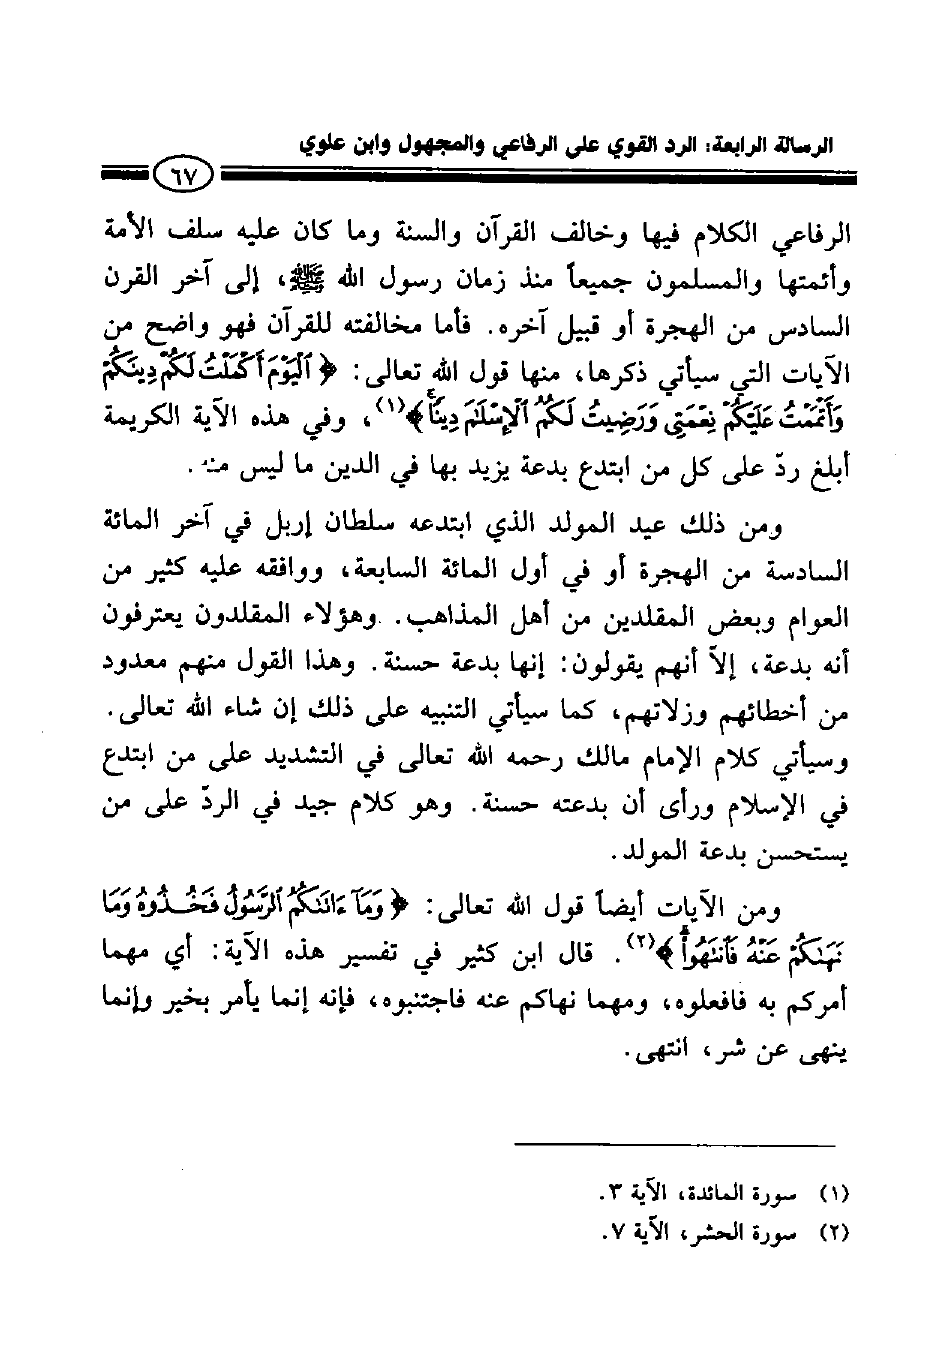 الرسالة الرابعة: الرد القوي على الرفاعي والمجهول وابن علوي
٦٧
الرفاعي الكلام فيها وخالف القرآن والسنة وما كان عليه سلف الأمة
وأئمتها والمسلمون جميعاً منذ زمان رسول الله ﷺ، إلى آخر القرن
السادس من الهجرة أو قبيل آخره. فأما مخالفته للقرآن فهو واضح من
الآيات التي سيأتي ذكرها، منها قول الله تعالى: ﴿ٱلْيَوْمَ أَكْمَلْتُ لَكُمْ دِينَكُمْ
وَأَتْمَمْتُ عَلَيْكُمْ نِعْمَتِي وَرَضِيتُ لَكُمُ ٱلْإِسْلَٰمَ دِينًا﴾(١)، وفي هذه الآية الكريمة
أبلغ ردّ على كل من ابتدع بدعة يزيد بها في الدين ما ليس منه.
ومن ذلك عيد المولد الذي ابتدعه سلطان إربل في آخر المائة
السادسة من الهجرة أو في أول المائة السابعة، ووافقه عليه كثير من
العوام وبعض المقلدين من أهل المذاهب. وهؤلاء المقلدون يعترفون
أنه بدعة، إلاّ أنهم يقولون: إنها بدعة حسنة. وهذا القول منهم معدود
من أخطائهم وزلاتهم، كما سيأتي التنبيه على ذلك إن شاء الله تعالى.
وسيأتي كلام الإمام مالك رحمه الله تعالى في التشديد على من ابتدع
في الإسلام ورأى أن بدعته حسنة. وهو كلام جيد في الردّ على من
يستحسن بدعة المولد.
ومن الآيات أيضاً قول الله تعالى: ﴿وَمَآ ءَاتَىٰكُمُ ٱلرَّسُولُ فَخُذُوهُ وَمَا
نَهَىٰكُمْ عَنْهُ فَٱنتَهُوا۟﴾(٢). قال ابن كثير في تفسير هذه الآية: أي مهما
أمركم به فافعلوه، ومهما نهاكم عنه فاجتنبوه، فإنه إنما يأمر بخير وإنما
ينهى عن شر، انتهى.
(١) سورة المائدة، الآية ٣.
(٢) سورة الحشر، الآية ٧.